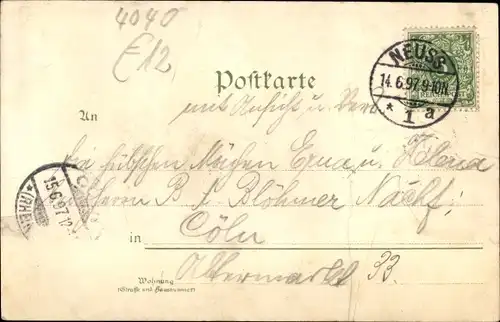 4040
E12
NEUSS
14.6.97.9-10N.
* 1 a
Postkarte
mit Ansicht u.
An
die hübschen Mädchen Erna u. Helena
Herrn B. Blöhmer Nachf:
15.6.97.12
in Cöln
Altermarkt 33.
Wohnung
(Straße und Hausnummer)